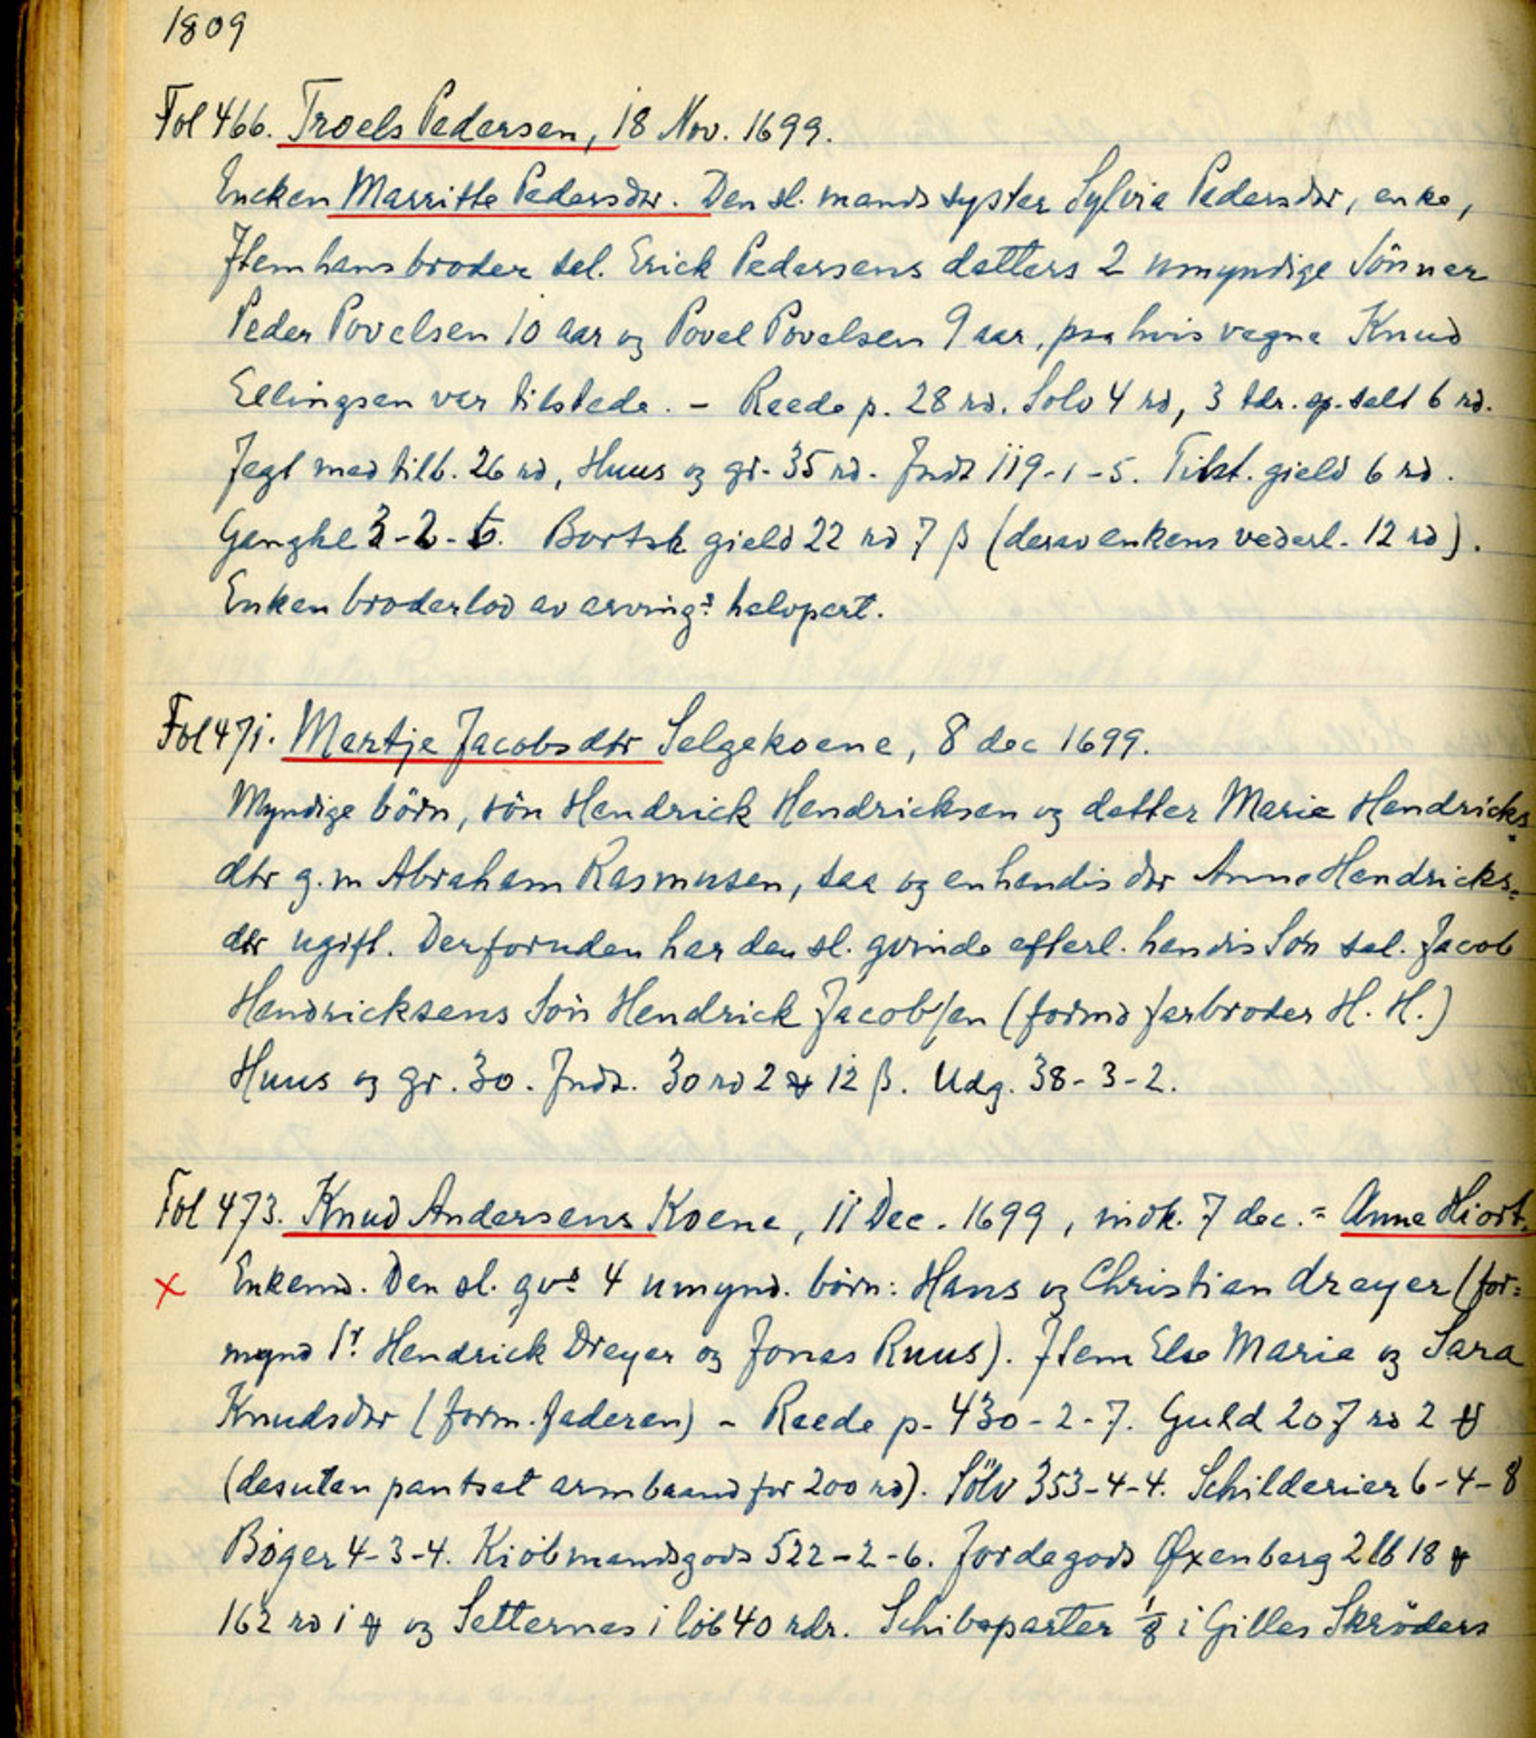 1809
Fol 466. Troels Pedersen, 18 Nov. 1699.
Encken Marritte Pedersdtr. Den sl. mands syster Sylvia Pedersdtr, enke,
Item hans broder sel. Erick Pedersens datters 2 umyndige Sönner
Peder Povelsen 10 aar og Povel Povelsen 9 aar, paa hvis vegne Knud
Ellingsen var tilstede. - Reede p. 28 rd. Sölv 4 rd, 3 tdr. sp. salt 6 rd.
Jegt med tilb. 26 rd, Huus og gr. 35 rd. Indt 119-1-5. Tilst. gield 6 rd.
Gengkl 3-2-6. Bortsk gield 22 rd 7 β (derav enkens vederl. 12 rd).
Enken broderlod av arving⁵ halvpart.
Fol 471. Martje Jacobsdtr Selgekoene, 8 dec 1699.
Myndige börn, sön Hendrick Hendricksen og datter Marie Hendricks
dtr g.m Abraham Rasmusen, saa og en hendis dtr Anne Hendricks-
dtr ugift. Derforuden har den sl. qvinde efterl. hendis Sön sal. Jacob
Hendricksens Sön Hendrick Jacobsen (formd farbroder H. H.)
Huus og gr. 30. Indt. 30 rd 2 ₰ 12 β. Udg. 38-3-2.
Fol 473. Knud Andersens Koene, 11 Dec. 1699, indk. 7 dec. = Anne Hiort.
x Enkemd. Den sl. qvs 4 umynd. börn: Hans og Christian dreyer (for=
mynd Sr. Hendrick Dreyer og Jonas Ruus). Item Else Marie og Sara
Knudsdtr (form. faderen) - Reede p. 430-2-7. Guld 207 rd 2 ₰
(desuten pantsat armbaand for 200 rd). Sölv 353-4-4. Schilderier 6-4-8
Böger 4-3-4. Kiöbmandsgods 522-2-6. Jordegods Øxenberg 2 lb 18 ₰
162 rd 1 ₰ og Setternes 1 löb 40 rdr. Schibsparter 1/8 i Gilles Skröders